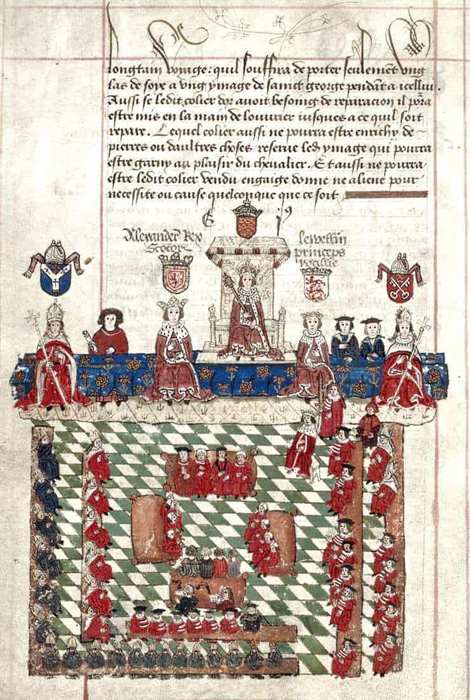 longtain voyage: quil souffira de porter seulement vng
las de soye a vng ymage de sainct george pendãt a icellui.
Aussi se ledit colier dor auoit besoing de reparacion il põra
estre mis en la main de louurier iusques a ce quil soit
repare. Lequel colier aussi ne pourra estre enrichy de
pierres ou daultres choses reserue led ymage qui pourra
estre garny au plaisir du cheualier. Et aussi ne pourra
estre ledit colier vendu engaige donne ne aliene pour
necessite ou cause quelconque que ce soit
Alexander Rex
Scotorz
Lewellin
princeps
wallie